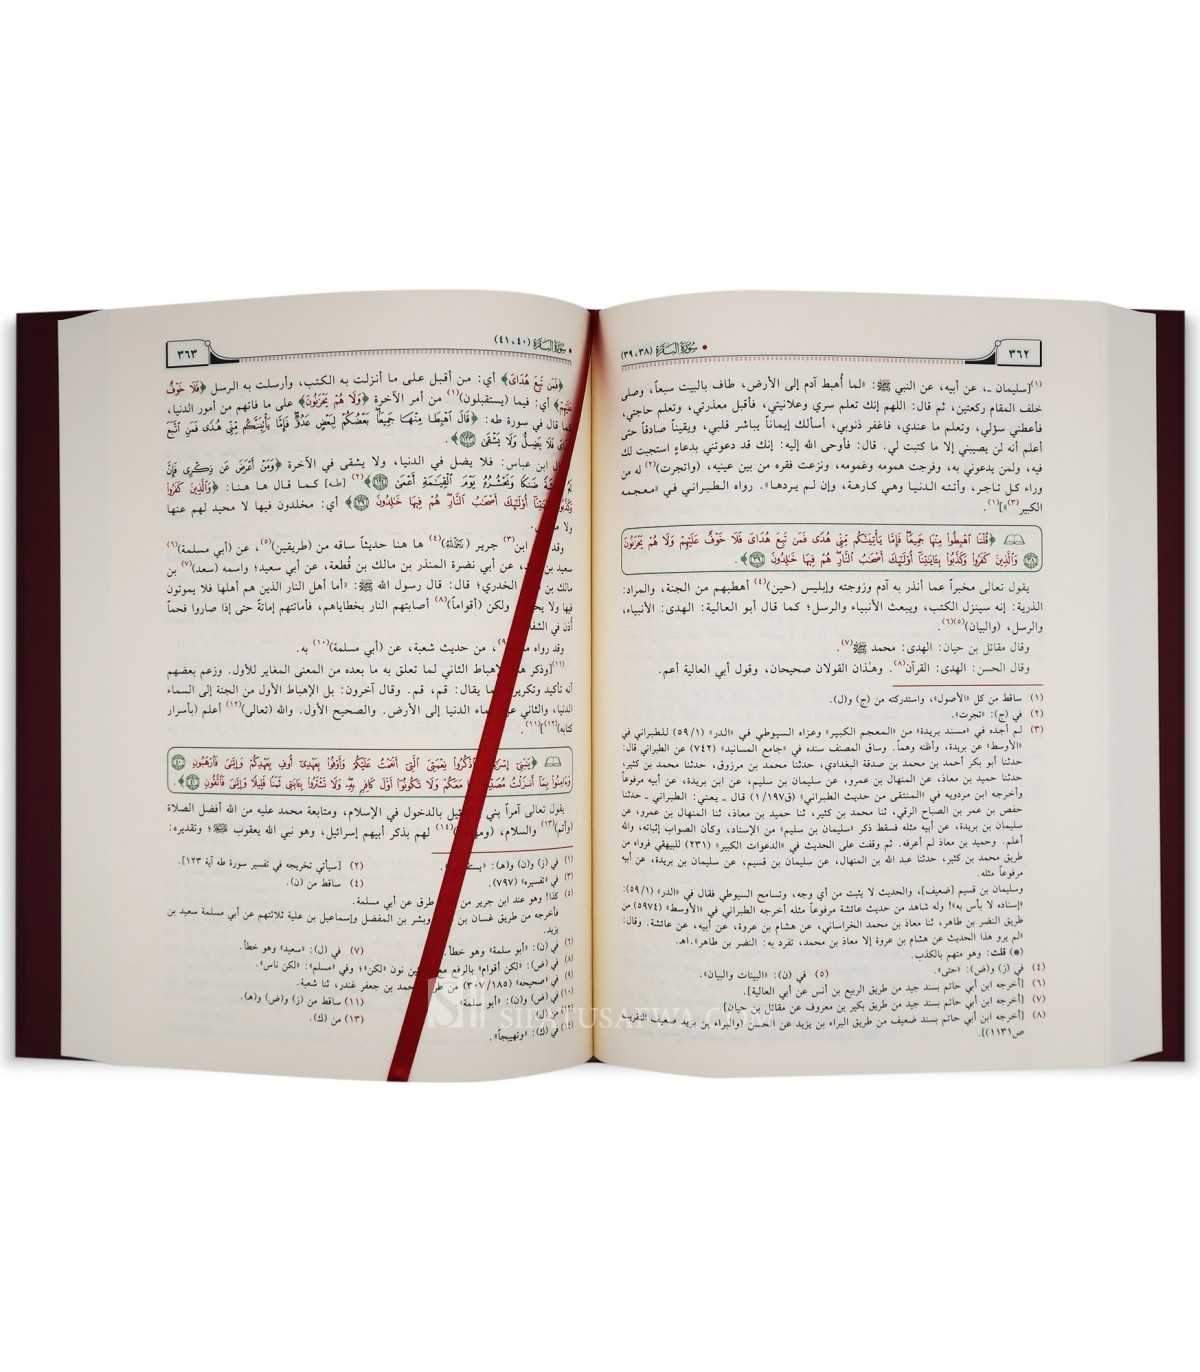 ٣٦٢
• سُورَةُ البَقَرَةِ (٣٨، ٣٩)
(١)[سليمان ـ، عن أبيه، عن النبي ﷺ: «لما أُهبط آدم إلى الأرض، طاف بالبيت سبعاً، وصلى
خلف المقام ركعتين، ثم قال: اللهم إنك تعلم سري وعلانيتي، فأقبل معذرتي، وتعلم حاجتي،
فأعطني سؤلي، وتعلم ما عندي، فاغفر ذنوبي، أسألك إيماناً يباشر قلبي، ويقيناً صادقاً حتى
أعلم أنه لن يصيبني إلا ما كتبت لي. قال: فأوحى الله إليه: إنك قد دعوتني بدعاءٍ استجبت لك
فيه، ولمن يدعوني به، وفرجت همومه وغمومه، ونزعت فقره من بين عينيه، (واتجرت)(٢) له من
وراء كل تاجر، وأتته الدنيا وهي كارهة، وإن لم يردها». رواه الطبراني في «معجمه
الكبير»(٣)](١).
﴿قُلْنَا ٱهْبِطُوا۟ مِنْهَا جَمِيعًا فَإِمَّا يَأْتِيَنَّكُم مِّنِّى هُدًى فَمَن تَبِعَ هُدَاىَ فَلَا خَوْفٌ عَلَيْهِمْ وَلَا هُمْ يَحْزَنُونَ
٣٨ وَٱلَّذِينَ كَفَرُوا۟ وَكَذَّبُوا۟ بِـَٔايَـٰتِنَآ أُو۟لَـٰٓئِكَ أَصْحَـٰبُ ٱلنَّارِ هُمْ فِيهَا خَـٰلِدُونَ ٣٩﴾.
يقول تعالى مخبراً عما أنذر به آدم وزوجته وإبليس (حين)(٤) أهبطهم من الجنة، والمراد:
الذرية: إنه سينزل الكتب، ويبعث الأنبياء والرسل؛ كما قال أبو العالية: الهدى: الأنبياء،
والرسل، (والبيان)(٥)(٦).
وقال مقاتل بن حيان: الهدى: محمد ﷺ(٧).
وقال الحسن: الهدى: القرآن(٨). وهذان القولان صحيحان، وقول أبي العالية أعم.
(١) ساقط من كل «الأصول»، واستدركته من (ج) و(ل).
(٢) في (ج): «تجرت».
(٣) لم أجده في «مسند بريدة» من «المعجم الكبير» وعزاه السيوطي في «الدر» (١/ ٥٩) للطبراني في
«الأوسط» عن بريدة، وأظنه وهماً. وساق المصنف سنده في «جامع المسانيد» (٧٤٢) عن الطبراني قال:
حدثنا أبو بكر أحمد بن محمد بن صدقة البغدادي، حدثنا محمد بن مرزوق، حدثنا محمد بن كثير،
حدثنا حميد بن معاذ، عن المنهال بن عمرو، عن سليمان بن سليم، عن ابن بريدة، عن أبيه مرفوعاً
وأخرجه ابن مردويه في «المنتقى من حديث الطبراني» (ق١/١٩٧) قال ـ يعني: الطبراني ـ حدثنا
حفص بن عمر بن الصباح الرقي، ثنا محمد بن كثير، ثنا حميد بن معاذ، ثنا المنهال بن عمرو، عن
سليمان بن بريدة، عن أبيه مثله فسقط ذكر «سليمان بن سليم» من الإسناد، وكأن الصواب إثباته، والله
أعلم. وحميد بن معاذ لم أعرفه. ثم وقفت على الحديث في «الدعوات الكبير» (٢٣١) للبيهقي فرواه من
طريق محمد بن كثير، حدثنا عبد الله بن المنهال، عن سليمان بن قسيم، عن سليمان بن بريدة، عن أبيه
مرفوعاً مثله.
وسليمان بن قسيم [ضعيف]، والحديث لا يثبت من أي وجه، وتسامح السيوطي فقال في «الدر» (١/ ٥٩):
«إسناده لا بأس به»! وله شاهد من حديث عائشة مرفوعاً مثله أخرجه الطبراني في «الأوسط» (٥٩٧٤) من
طريق النضر بن طاهر، ثنا معاذ بن محمد الخراساني، عن هشام بن عروة، عن أبيه، عن عائشة. وقال:
«لم يرو هذا الحديث عن هشام بن عروة إلا معاذ بن محمد، تفرد به: النضر بن طاهر». اهـ.
(●) قلت: وهو متهم بالكذب.
(٤) في (ز) و(ض): «حتى». (٥) في (ن): «البينات والبيان».
(٦) [أخرجه ابن أبي حاتم بسند جيد من طريق الربيع بن أنس عن أبي العالية].
(٧) [أخرجه ابن أبي حاتم بسند جيد من طريق بكير بن معروف عن مقاتل بن حيان]
(٨) [أخرجه ابن أبي حاتم بسند ضعيف من طريق البراء بن يزيد عن الحسن (والبراء بن يزيد ضعيف التقريب
ص١١٣١)].
• سُورَةُ البَقَرَةِ (٤٠، ٤١)
٣٦٣
﴿فَمَن تَبِعَ هُدَاىَ﴾ أي: من أقبل على ما أنزلت به الكتب، وأرسلت به الرسل ﴿فَلَا خَوْفٌ
عَلَيْهِمْ﴾ أي: فيما (يستقبلون)(١) من أمر الآخرة ﴿وَلَا هُمْ يَحْزَنُونَ﴾ على ما فاتهم من أمور الدنيا،
كما قال في سورة طه: ﴿قَالَ ٱهْبِطَا مِنْهَا جَمِيعًۢا بَعْضُكُمْ لِبَعْضٍ عَدُوٌّ فَإِمَّا يَأْتِيَنَّكُم مِّنِّى هُدًى فَمَنِ ٱتَّبَعَ
فَلَا يَضِلُّ وَلَا يَشْقَىٰ ١٢٣﴾.
ابن عباس: فلا يضل في الدنيا، ولا يشقى في الآخرة ﴿وَمَنْ أَعْرَضَ عَن ذِكْرِى فَإِنَّ
ضَنكًا وَنَحْشُرُهُۥ يَوْمَ ٱلْقِيَـٰمَةِ أَعْمَىٰ ١٢٤﴾(٢) [طه] كما قال ها هنا: ﴿وَٱلَّذِينَ كَفَرُوا۟
أُو۟لَـٰٓئِكَ أَصْحَـٰبُ ٱلنَّارِ هُمْ فِيهَا خَـٰلِدُونَ ٣٩﴾ أي: مخلدون فيها لا محيد لهم عنها
ولا
وقد ابن(٣) جرير (رحمه الله)(٤) ها هنا حديثاً ساقه من (طريقين)(٥)، عن (أبي مسلمة)(٦)
سعيد بن عن أبي نضرة المنذر بن مالك بن قُطعة، عن أبي سعيد؛ واسمه (سعد)(٧) بن
مالك بن الخدري؛ قال: قال رسول الله ﷺ: «أما أهل النار الذين هم أهلها فلا يموتون
فيها ولا ولكن (أقواماً)(٨) أصابتهم النار بخطاياهم، فأماتتهم إماتةً حتى إذا صاروا فحماً
أُذن في
وقد رواه (٩)، من حديث شعبة، عن (أبي مسلمة)(١٠) به.
(١١)[وذكر الإهباط الثاني لما تعلق به ما بعده من المعنى المغاير للأول. وزعم بعضهم
أنه تأكيد وتكرير يقال: قم، قم. وقال آخرون: بل الإهباط الأول من الجنة إلى السماء
الدنيا، والثاني الدنيا إلى الأرض. والصحيح الأول. والله (تعالى)(١٢) أعلم (بأسرار
كتابه)(١٢)](١١).
﴿يَـٰبَنِىٓ ٱذْكُرُوا۟ نِعْمَتِىَ ٱلَّتِىٓ أَنْعَمْتُ عَلَيْكُمْ وَأَوْفُوا۟ بِعَهْدِىٓ أُوفِ بِعَهْدِكُمْ وَإِيَّـٰىَ فَٱرْهَبُونِ ٤٠
وَءَامِنُوا۟ بِمَآ أَنزَلْتُ مَعَكُمْ وَلَا تَكُونُوٓا۟ أَوَّلَ كَافِرٍۭ بِهِۦ وَلَا تَشْتَرُوا۟ بِـَٔايَـٰتِى ثَمَنًا قَلِيلًا وَإِيَّـٰىَ فَٱتَّقُونِ ٤١﴾.
يقول تعالى آمراً بني بالدخول في الإسلام، ومتابعة محمد عليه من الله أفضل الصلاة
(وأتم)(١٣) والسلام، (١٤) لهم بذكر أبيهم إسرائيل، وهو نبي الله يعقوب؛ وتقديره:
(١) في (ز) و(ن) و(هـ): (٢) [سيأتي تخريجه في تفسير سورة طه آية ١٢٣].
(٣) في «تفسيره» (٧٩٧). (٤) ساقط من (ن).
(٥) كذا! وهو عند ابن جرير من طرق عن أبي مسلمة.
فأخرجه من طريق غسان بن وبشر بن المفضل وإسماعيل بن علية ثلاثتهم عن أبي مسلمة سعيد بن
يزيد.
(٦) في (ن): «أبو سلمة» وهو خطأ. (٧) في (ل): «سعيد» وهو خطأ.
(٨) في (ض): «لكن أقوام» بالرفع نون «لكن»؛ وفي «مسلم»: «لكن ناس».
(٩) «صحيحه» (١٨٥/ ٣٠٧) من بن جعفر غندر، ثنا شعبة.
(١٠) في (ض) و(ن): «أبو سلمة» (١١) ساقط من (ز) و(ض) و(هـ).
(١٢) (ل) (١٣) من (ك).
(١٤) في (ك): «وتهييجاً».
SIFATUSAFWA.COM